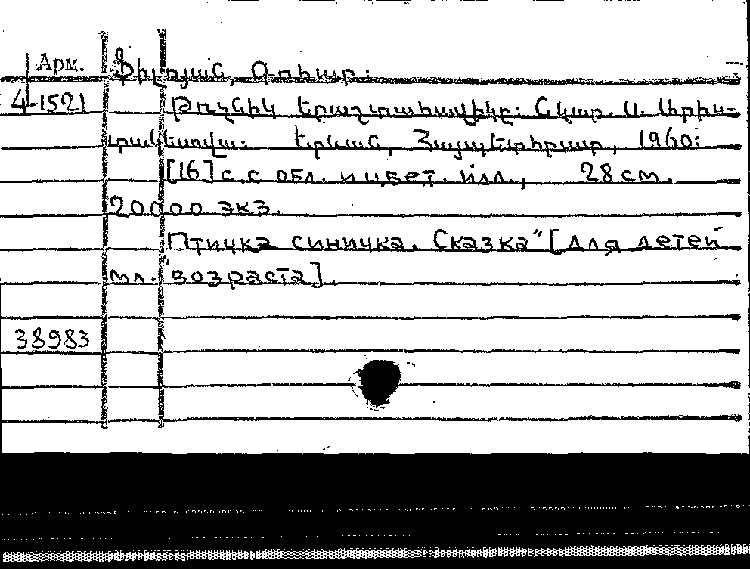 Арм.
Ֆիլյան, Օ
4-1521
Թռչնիկ Երաշտահավիկը: Նկար. Ա.
Երևան, Հայպետհրատ, 1960:
[16] с. с обл. и цвет. илл., 28 см.
20000 экз.
Птичка синичка. Сказка" [Для детей
мл. возраста].
38983